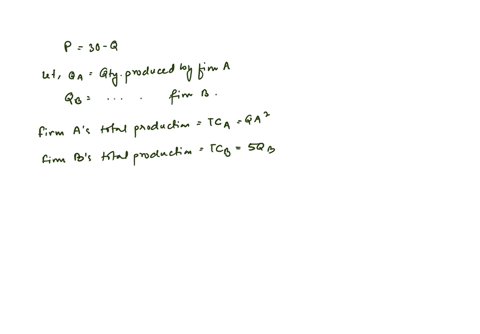 P = 30-Q
let, QA = Qty. produced by firm A
QB = ... . firm B.
firm A's total production = TCA = QA²
firm B's total production = TCB = 5QB